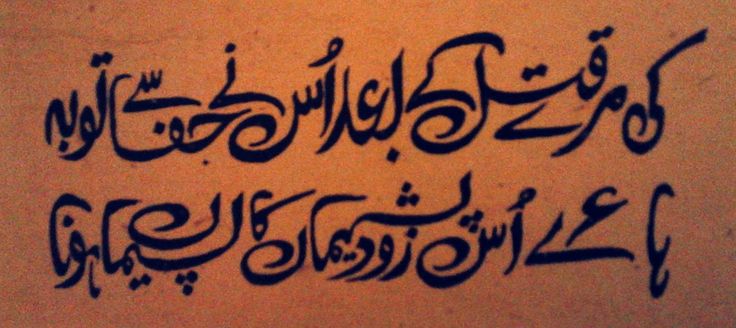 کی مرے قتل کے بعد اُس نے جفا سے توبہ
ہاۓ اُس زود پشیماں کا پشیماں ہونا